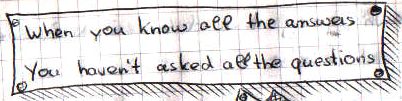 When you know all the answers
You haven't asked all the questions